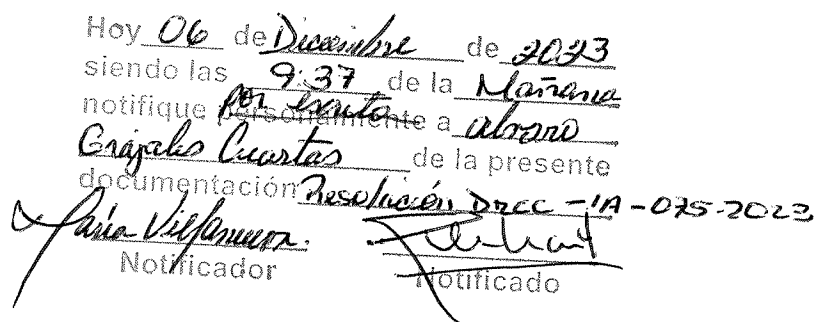 Hoy 06 de Diciembre de 2023
siendo las 9:37 de la Mañana
notifique personalmente por escrito a alvaro
Grajales Cuartas de la presente
documentación Resolución DRCC-IA-075-2023
María Villanueva.
Notificador Notificado